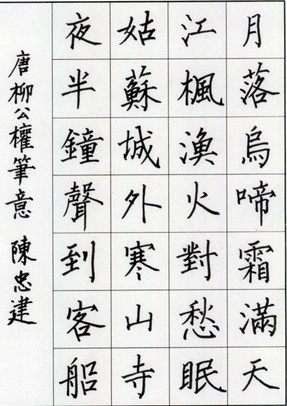 月落烏啼霜滿天
江楓漁火對愁眠
姑蘇城外寒山寺
夜半鐘聲到客船
唐柳公權筆意 陳忠建